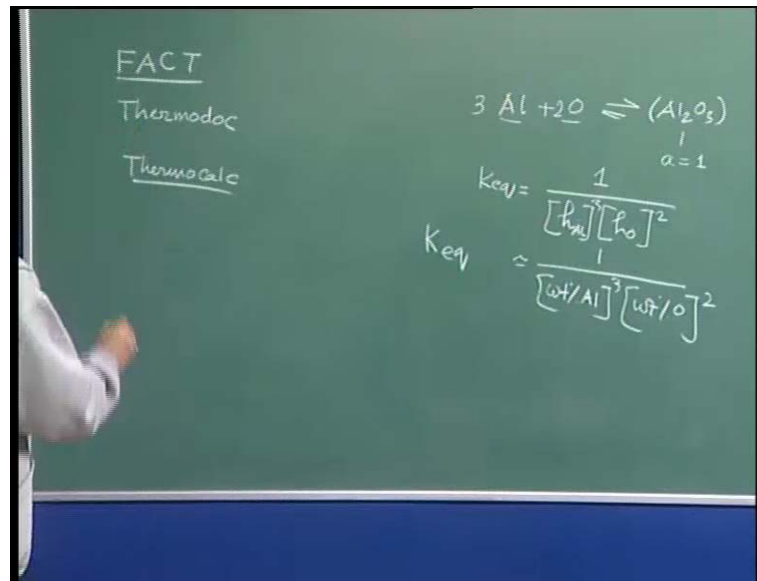 FACT
Thermodoc
Thermocalc
3 Al + 2O ⇌ (Al2O3)
a = 1
Keq = 1 / [hAl]^3 [hO]^2
Keq ≃ 1 / [wt% Al]^3 [wt% O]^2